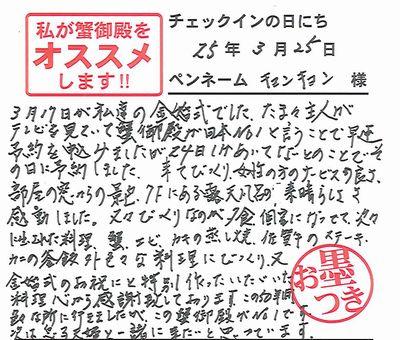 私が蟹御殿を
オススメ
します!!
チェックインの日にち
25年3月25日
ペンネーム キョンキョン 様
3月17日が私達の金婚式でした。たまたま主人が
テレビを見ていて蟹御殿が日本No1と言うことで早速
予約を申込みましたが、24日しかあいてないとのことでそ
の日に予約しました。まずびっくり、女性の方のサービスの良さ、
部屋の窓からの景色、7Fにある露天風呂の素晴らしさ
感動しました。又々びっくりなのが夕食、個室になってて、次々
出された料理、蟹、エビ、カキの蒸し焼、佐賀牛のステーキ、
カニの釜飯、外色々な料理にびっくり、又
金婚式のお祝にと特別作っていただいた
料理、心から感謝致しております。この幼年間
色々な所に行きましたが、この蟹御殿がNo1です。
次は息子夫婦と一諸に来たいと思っています。
お墨つき